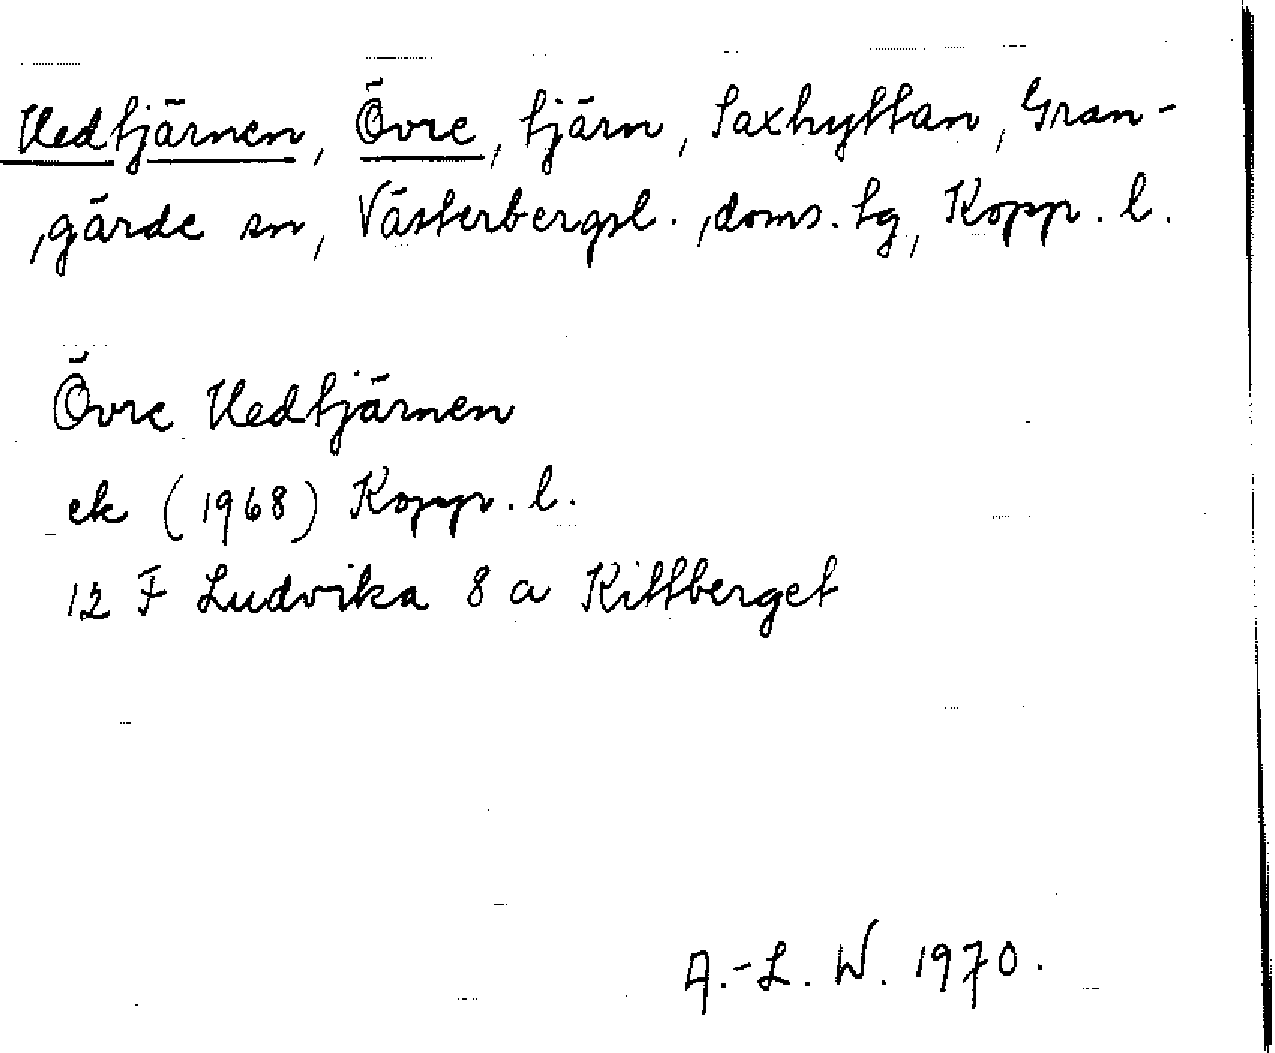 Hedtjärnen, Övre, tjärn, Saxhyttan, Gran-
gärde sn, Västerbergsl. doms. tg, Kopp. l.
Övre Hedtjärnen
ek (1968) Kopp. l.
12 F Ludvika 8 a Kittberget
A.-L. W. 1970.